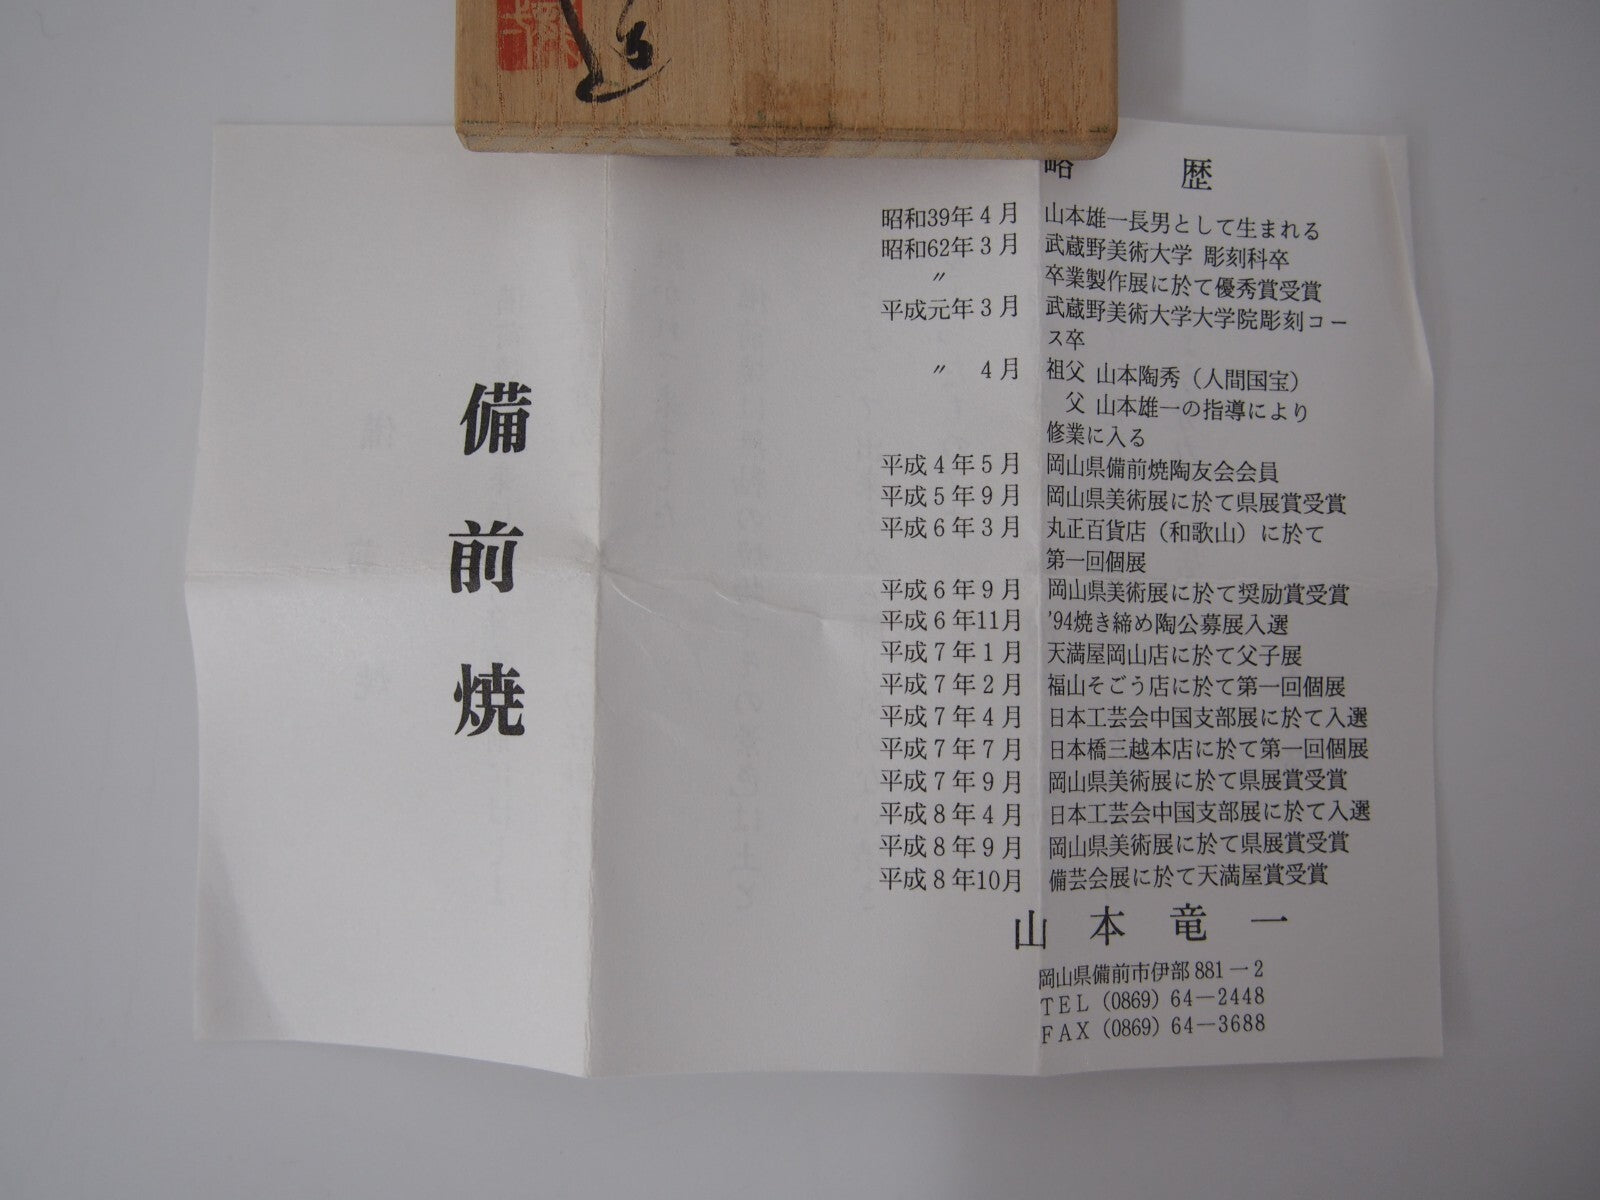 備前焼
略歴
昭和39年4月 山本雄一長男として生まれる
昭和62年3月 武蔵野美術大学 彫刻科卒
〃 卒業製作展に於て優秀賞受賞
平成元年3月 武蔵野美術大学大学院彫刻コー
ス卒
〃 4月 祖父 山本陶秀（人間国宝）
父 山本雄一の指導により
修業に入る
平成4年5月 岡山県備前焼陶友会会員
平成5年9月 岡山県美術展に於て県展賞受賞
平成6年3月 丸正百貨店（和歌山）に於て
第一回個展
平成6年9月 岡山県美術展に於て奨励賞受賞
平成6年11月 '94焼き締め陶公募展入選
平成7年1月 天満屋岡山店に於て父子展
平成7年2月 福山そごう店に於て第一回個展
平成7年4月 日本工芸会中国支部展に於て入選
平成7年7月 日本橋三越本店に於て第一回個展
平成7年9月 岡山県美術展に於て県展賞受賞
平成8年4月 日本工芸会中国支部展に於て入選
平成8年9月 岡山県美術展に於て県展賞受賞
平成8年10月 備芸会展に於て天満屋賞受賞
山本竜一
岡山県備前市伊部881－2
TEL（0869）64－2448
FAX（0869）64－3688